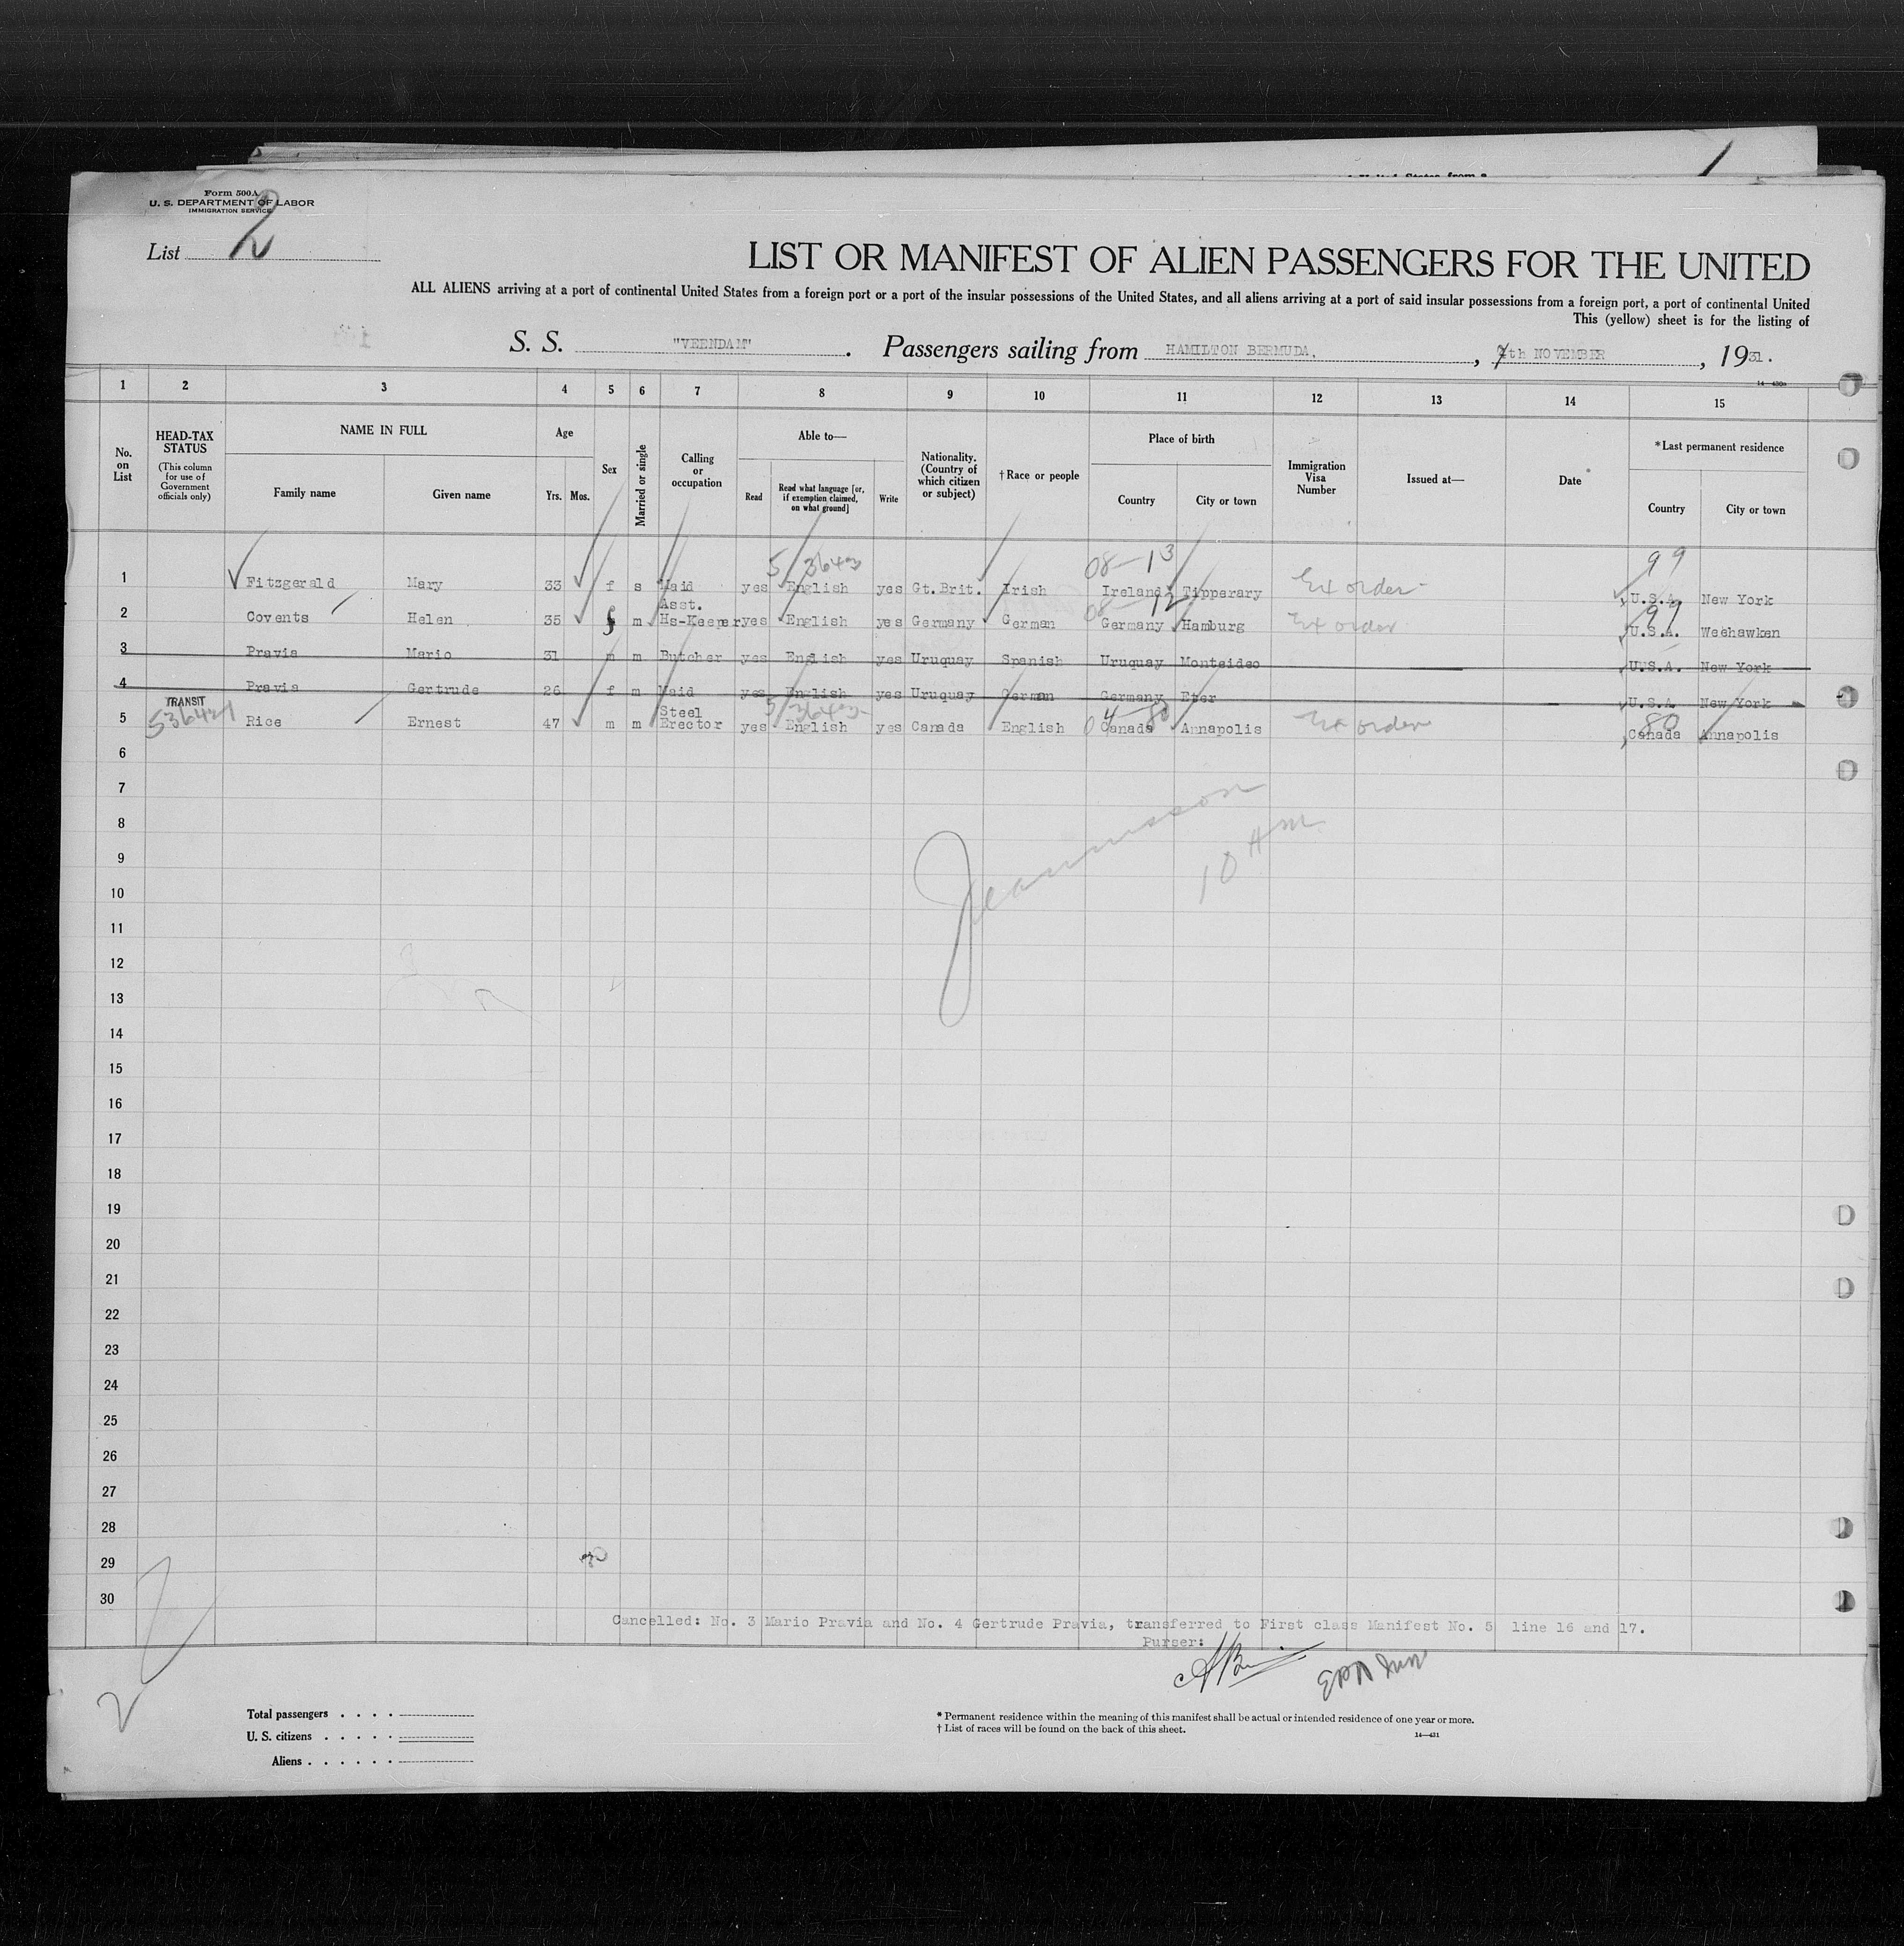 Form 500A
U. S. DEPARTMENT OF LABOR
IMMIGRATION SERVICE
List 2
LIST OR MANIFEST OF ALIEN PASSENGERS FOR THE UNITED
ALL ALIENS arriving at a port of continental United States from a foreign port or a port of the insular possessions of the United States, and all aliens arriving at a port of said insular possessions from a foreign port, a port of continental United
This (yellow) sheet is for the listing of
S. S. "VEENDAM". Passengers sailing from HAMILTON BERMUDA, 7th NOVEMBER, 1931.
14—430a
1 2 3 4 5 6 7 8 9 10 11 12 13 14 15
No. on List HEAD-TAX STATUS (This column for use of Government officials only) NAME IN FULL Family name Given name Age Yrs. Mos. Sex Married or single Calling or occupation Able to— Read Read what language [or, if exemption claimed, on what ground] Write Nationality. (Country of which citizen or subject) †Race or people Place of birth Country City or town Immigration Visa Number Issued at— Date *Last permanent residence Country City or town
5/3643 08-13 99
1 Fitzgerald Mary 33 f s Maid yes English yes Gt.Brit. Irish Ireland Tipperary Ex order U.S.A. New York
08-12 99
2 Covents Helen 35 f m Asst. Hs-Keeper yes English yes Germany German Germany Hamburg Ex order U.S.A. Weehawken
3 Pravia Mario 31 m m Butcher yes English yes Uruguay Spanish Uruguay Monteideo U.S.A. New York
4 Pravia Gertrude 26 f m Maid yes English yes Uruguay German Germany Eter U.S.A. New York
TRANSIT
5 Rice Ernest 47 m m Steel Erector yes English yes Canada English Canada Annapolis Ex order 80 Canada Annapolis
6
7
8
9
10
10 AM
11
12
13
14
15
16
17
18
19
20
21
22
23
24
25
26
27
28
29
30
Cancelled: No. 3 Mario Pravia and No. 4 Gertrude Pravia, transferred to First class Manifest No. 5 line 16 and 17.
Purser:
2
Total passengers . . . .
U. S. citizens . . . . .
Aliens . . . . . .
* Permanent residence within the meaning of this manifest shall be actual or intended residence of one year or more.
† List of races will be found on the back of this sheet.
14—431